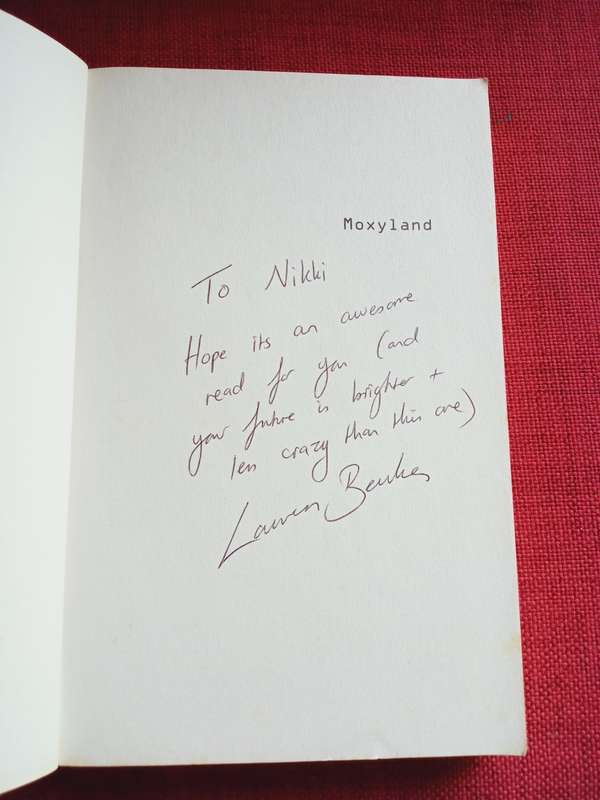 Moxyland
To Nikki
Hope its an awesome
read for you (and
your future is brighter +
less crazy than this one)
Lauren Beukes